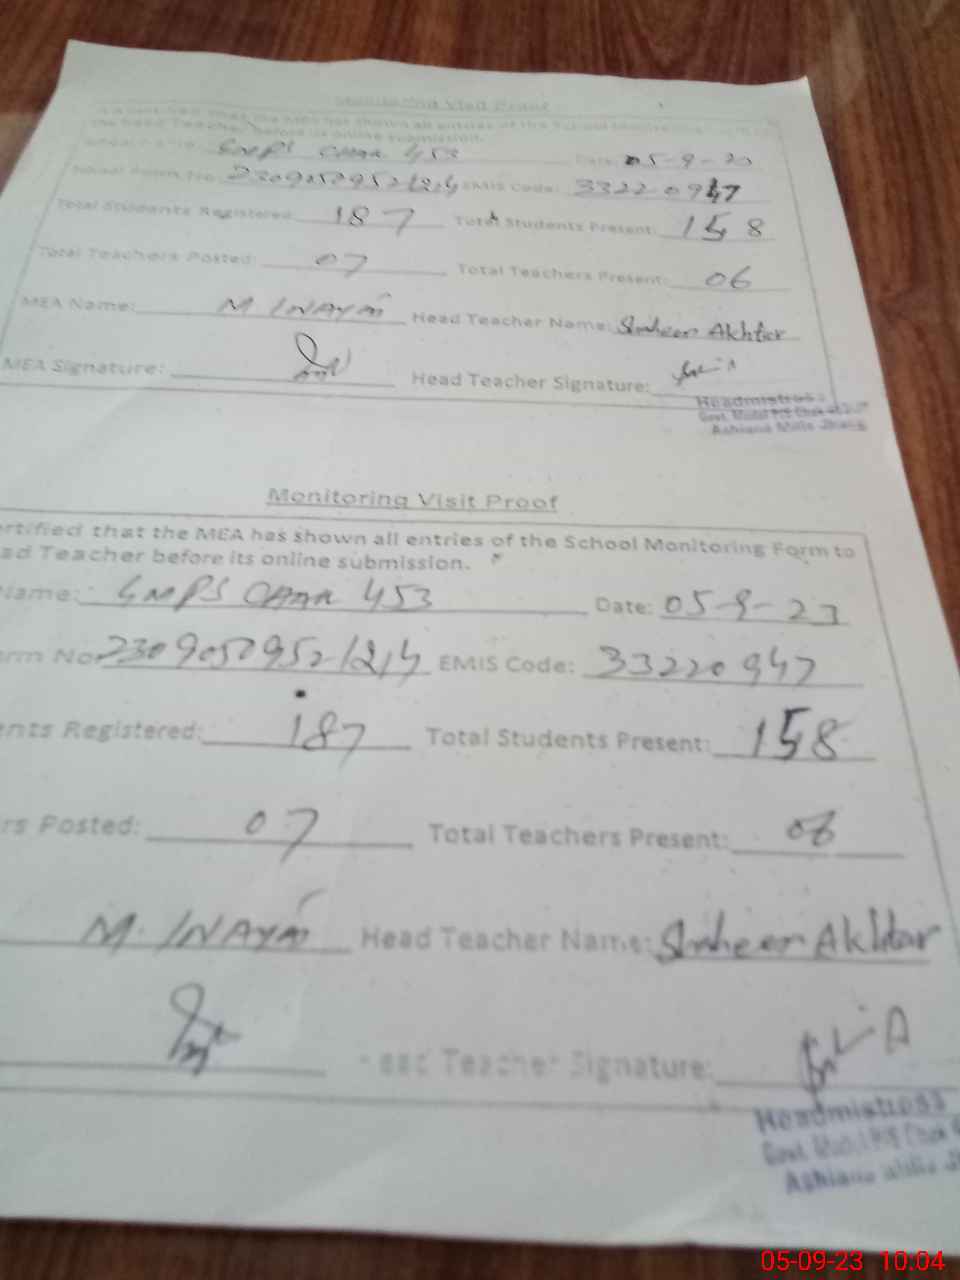 Monitoring Visit Proof
the MEA has shown all entries of the School Monitoring
the Head Teacher before its online submission.
GMPS CHAK 453 Date: 05-9-23
EMIS Code: 33220947
Total Students Registered 187 Total Students Present: 158
Total Teachers Posted: 07 Total Teachers Present: 06
MEA Name: M INAYAT Head Teacher Name: Shaheen Akhtar
MEA Signature: Head Teacher Signature:
Headmistress
Govt. Model P/S Chak
Ashiana Mills Jhang
Monitoring Visit Proof
ertified that the MEA has shown all entries of the School Monitoring Form to
ad Teacher before its online submission.
Name: GMPS CHAK 453 Date: 05-9-23
orm No. EMIS Code: 33220947
ents Registered: 187 Total Students Present: 158
rs Posted: 07 Total Teachers Present: 06
M. INAYAT Head Teacher Name: Shaheen Akhtar
ead Teacher Signature:
Headmistress
Govt. Model P/S Chak
Ashiana Mills
05-09-23 10:04